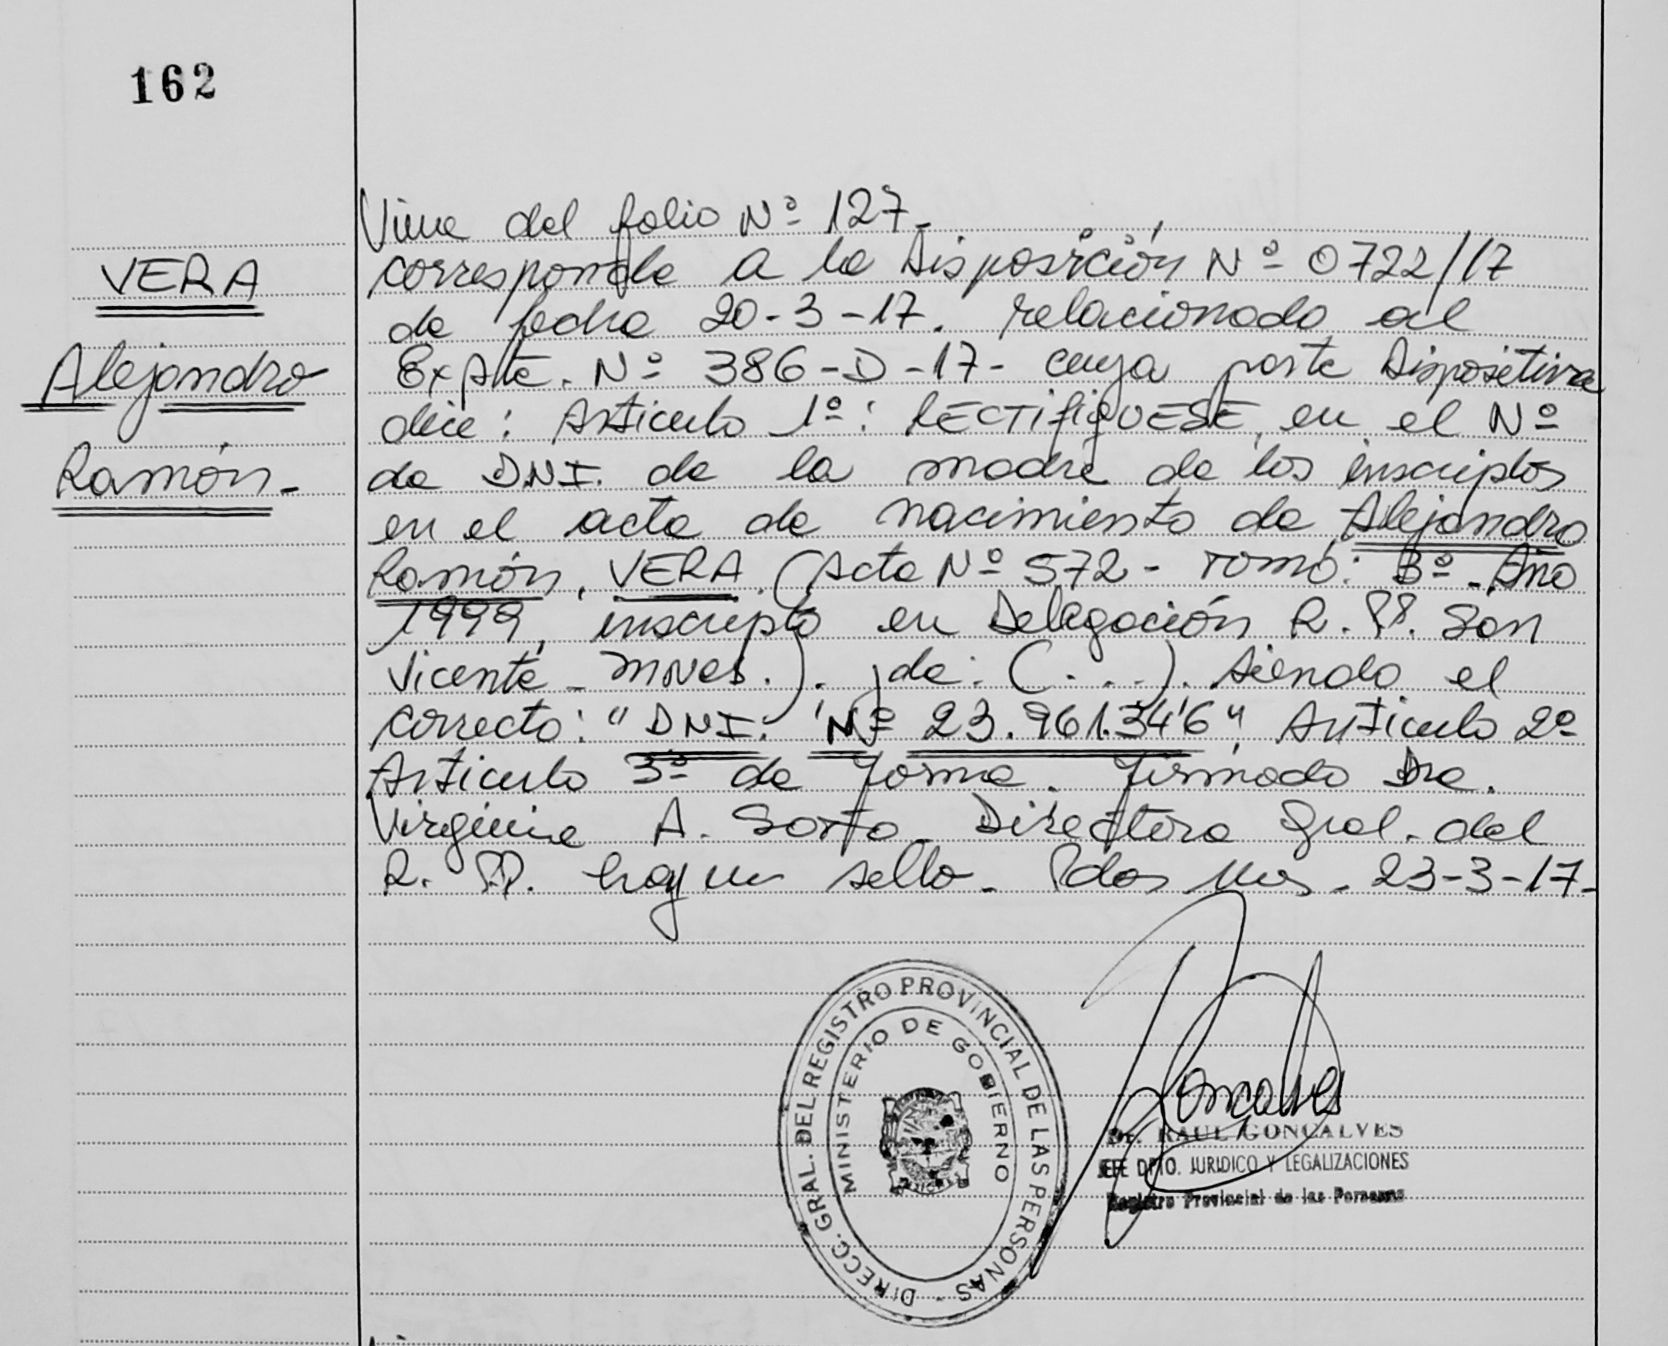 162
VERA
Alejandro
Ramón.-
Viene del folio Nº 127.-
corresponde a la Disposición Nº 0722/17
de fecha 20-3-17. relacionado al
Expte. Nº 386-D-17- cuya parte Dispositiva
dice: Articulo 1º: RECTIFIQUESE, en el Nº
de DNI. de la madre de los inscriptos
en el acta de nacimiento de Alejandro
Ramón, VERA (Acta Nº 572 - Tomo: 3º - Año
1999, inscripto en Delegación R. PP. San
Vicente - Mnes.). de: (...). siendo el
correcto: "DNI. Nº 23.961.346" Articulo 2º
Articulo 3º de forma. firmado Dra.
Virginia A. Sorto. Directora Gral. del
R. PP. hay un sello. Pdas Mnes. 23-3-17.-
DIRECC. GRAL. DEL REGISTRO PROVINCIAL DE LAS PERSONAS -
MINISTERIO DE GOBIERNO
Goncalves
Dr. RAUL GONCALVES
JEFE DPTO. JURIDICO Y LEGALIZACIONES
Registro Provincial de las Personas